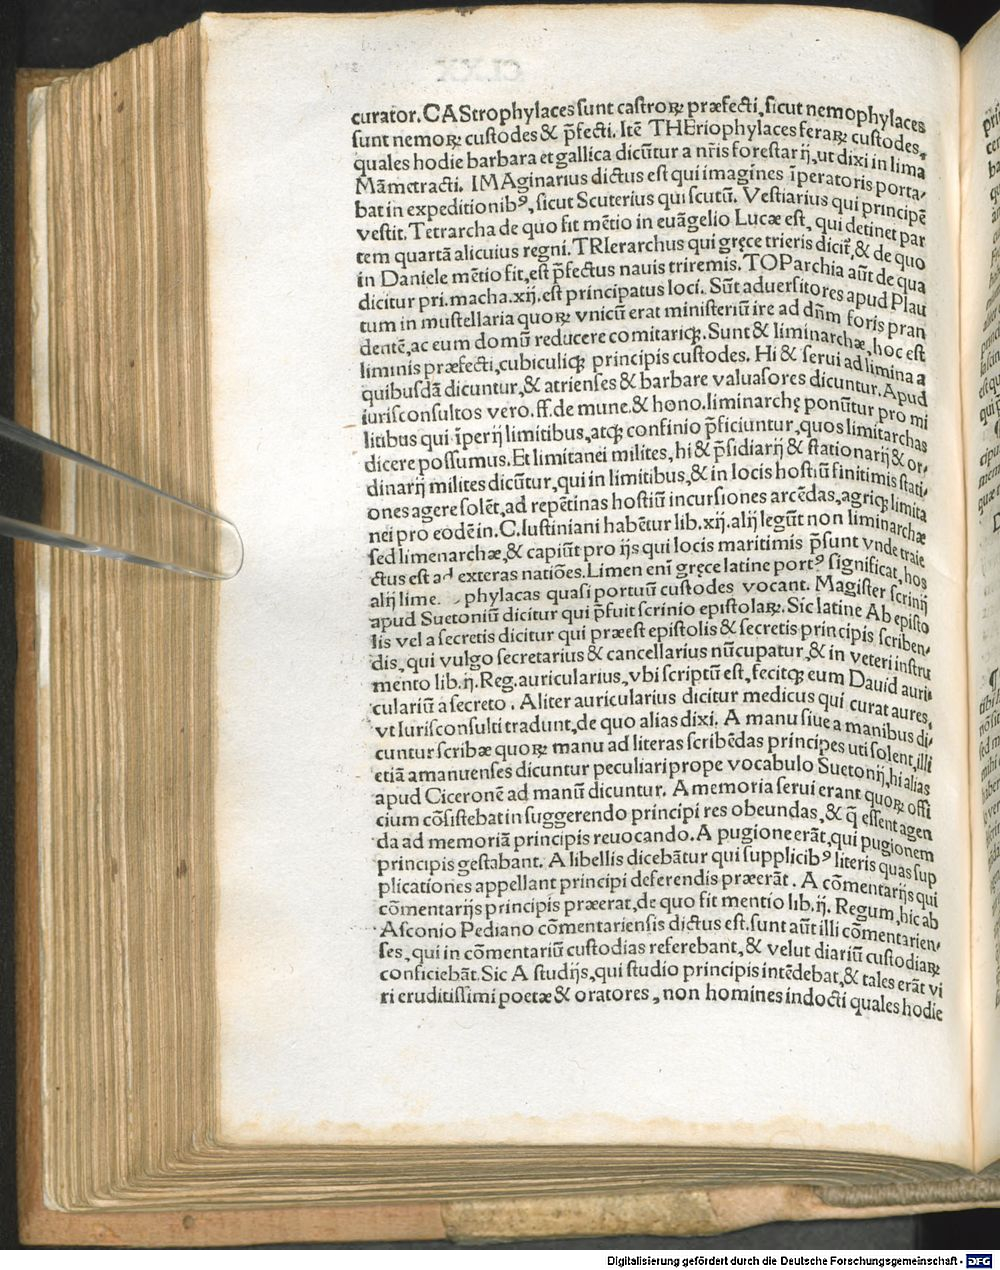 curator. CAStrophylaces sunt castroꝝ præfecti, sicut nemophylaces
sunt nemoꝝ custodes & p̃fecti. Itẽ THEriophylaces feraꝝ custodes,
quales hodie barbara et gallica dicũtur a nr̃is forestarij, ut dixi in lima
Mãmetracti. IMAginarius dictus est qui imagines ĩperatoris porta⸗
bat in expeditionibꝰ, sicut Scuterius qui scutũ. Vestiarius qui principẽ
vestit. Tetrarcha de quo fit mẽtio in euãgelio Lucæ est, qui detinet par
tem quartã alicuius regni. TRIerarchus qui gręce trieris dicit̃, & de quo
in Daniele mẽtio fit, est p̃fectus nauis triremis. TOParchia aũt de qua
dicitur pri. macha. xij. est principatus loci. Sũt aduersitores apud Plau
tum in mustellaria quoꝝ vnicũ erat ministeriũ ire ad dñm foris pran
dentẽ, ac eum domũ reducere comitariq̃. Sunt & liminarchæ, hoc est
liminis præfecti, cubiculiq̃ principis custodes. Hi & serui ad limina a
quibusdã dicuntur, & atrienses & barbare valuasores dicuntur. Apud
iurisconsultos vero. ff. de mune. & hono. liminarchę ponũtur pro mi
litibus qui ĩperij limitibus, atq̃ confinio p̃ficiuntur, quos limitarchas
dicere possumus. Et limitanei milites, hi & p̃sidiarij & stationarij & or⸗
dinarij milites dicũtur, qui in limitibus, & in locis hostiũ finitimis stati⸗
ones agere solẽt, ad repẽtinas hostiũ incursiones arcẽdas, agriq̃ limita
nei pro eodẽ in. C. Iustiniani habẽtur lib. xij. alij legũt non liminarchæ
sed limenarchæ, & capiũt pro ijs qui locis maritimis p̃sunt vnde traie
ctus est ad exteras natiões. Limen enĩ gręce latine portꝰ significat, hos
alij lime phylacas quasi portuũ custodes vocant. Magister scrinij
apud Suetoniũ dicitur qui p̃fuit scrinio epistolaꝝ. Sic latine Ab episto
lis vel a secretis dicitur qui præest epistolis & secretis principis scriben⸗
dis, qui vulgo secretarius & cancellarius nũcupatur, & in veteri instru
mento lib. ij. Reg. auricularius, vbi scriptũ est, fecitq̃ eum Dauid auri⸗
culariũ a secreto. Aliter auricularius dicitur medicus qui curat aures,
vt Iurisconsulti tradunt, de quo alias dixi. A manu siue a manibus di⸗
cuntur scribæ quoꝝ manu ad literas scribẽdas principes uti solent, illi
etiã amanuenses dicuntur peculiari prope vocabulo Suetonij, hi alias
apud Ciceronẽ ad manũ dicuntur. A memoria serui erant quoꝝ offi
cium cõsistebat in suggerendo principi res obeundas, & q̃ essent agen
da ad memoriã principis reuocando. A pugione erãt, qui pugionem
principis gestabant. A libellis dicebãtur qui supplicibꝰ literis quas sup
plicationes appellant principi deferendis præerãt. A cõmentarijs qui
cõmentarijs principis præerat, de quo fit mentio lib. ij. Regum, hic ab
Asconio Pediano cõmentariensis dictus est. sunt aũt illi cõmentarien⸗
ses, qui in cõmentariũ custodias referebant, & velut diariũ custodiaꝝ
conficiebãt. Sic A studijs, qui studio principis intẽdebat, & tales erãt vi
ri eruditissimi poetæ & oratores, non homines indocti quales hodie
Digitalisierung gefördert durch die Deutsche Forschungsgemeinschaft - DFG